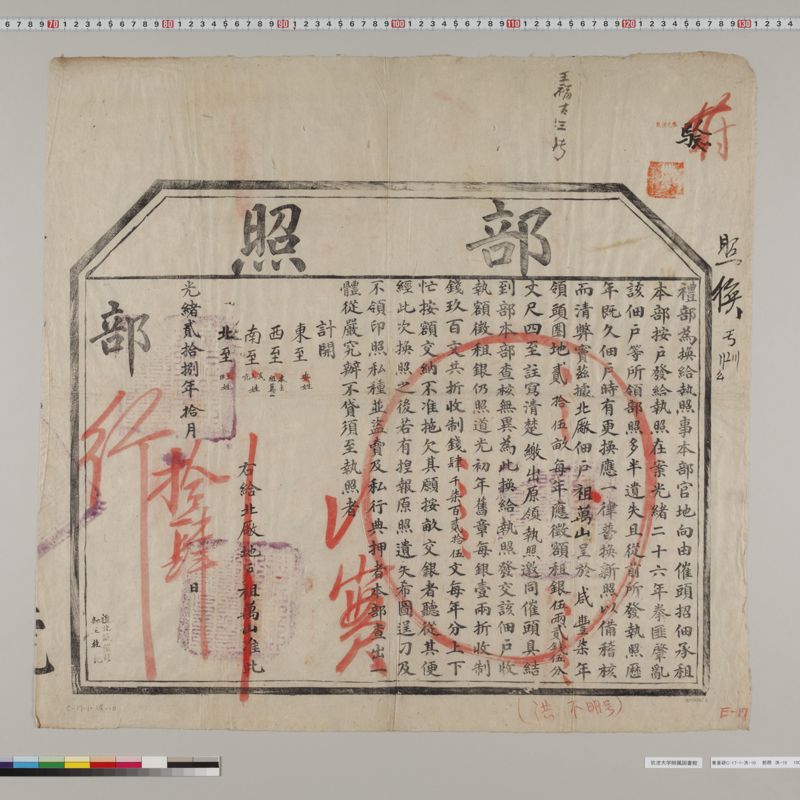 部照
禮部為換給執照事本部官地向由催頭招佃承租
本部按戶發給執照在案光緒二十六年拳匪肇亂
該佃戶等所領部照多半遺失且從前所發執照歷
年既久佃戶時有更換應一律普換新照以備稽核
而清弊竇茲據北廠佃戶祖萬山呈於咸豐柒年
領頭圈地貳拾伍畝每年應徵額租銀伍兩貳錢伍分
丈尺四至註寫清楚繳出原領執照邀同催頭具結
到部本部查核無異為此換給執照發交該佃戶收
執額徵租銀仍照道光初年舊章每銀壹兩折收制
錢玖百文共折收制錢肆千柒百貳拾伍文每年分上下
忙按額交納不准拖欠其願按畝交銀者聽從其便
經此次換照之後若有捏報原照遺失希圖逞刁及
不領印照私種並盜賣及私行典押者本部查出一
體從嚴究辦不貸須至執照者
計開
東至
西至
南至
北至
右給北廠地戶祖萬山准此
光緒貳拾捌年拾月拾肆日
部
行
實
(洪 不明号)
E-17
筑波大学附属図書館